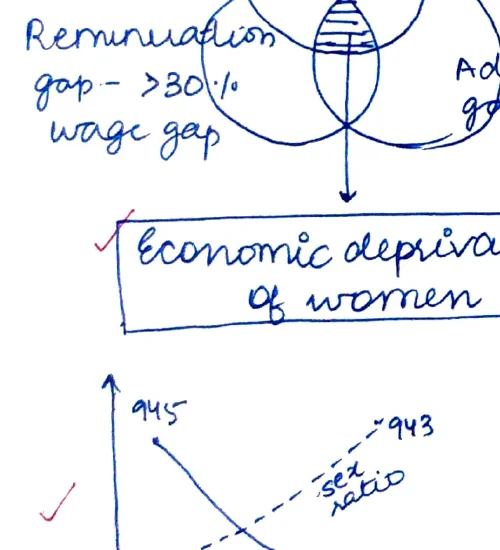 Reminuration
gap - >30%
wage gap
Economic
of women
945
943
sex
ratio